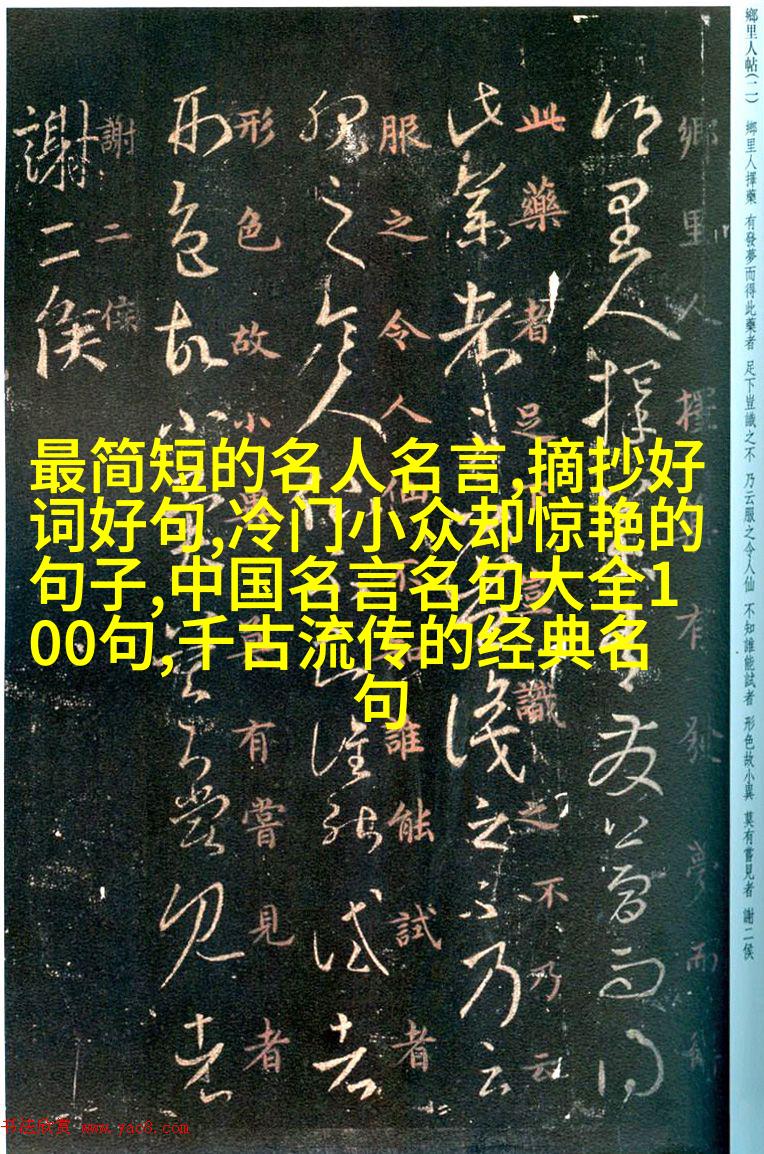 鄉里人帖(二) 鄉里人擇藥 有發夢而得此藥者 足下豈識之不 乃云服之令人仙 不知誰能試者 形色故小異 莫有嘗見者 謝二侯
鄉里人擇藥有發夢而得
此藥者足下豈識之不乃云
服之令人仙不知誰能試者
形色故小異莫有嘗見者
謝二侯
最简短的名人名言,摘抄好
词好句,冷门小众却惊艳的
句子,中国名言名句大全1
00句,千古流传的经典名
句
书法欣赏 www.yac8.com